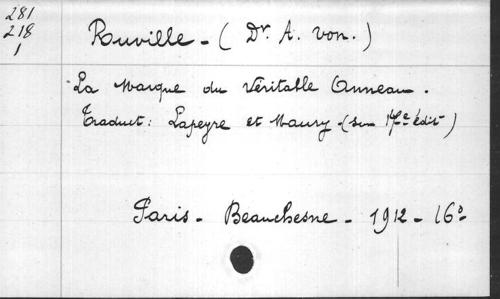 281
218
1
Ruville - ( Dr. A. von. )
La Marque du Véritable Anneau.
Traduct: Lapeyre et Maury - ( édit )
Paris - Beauchesne - 1912 - 16°